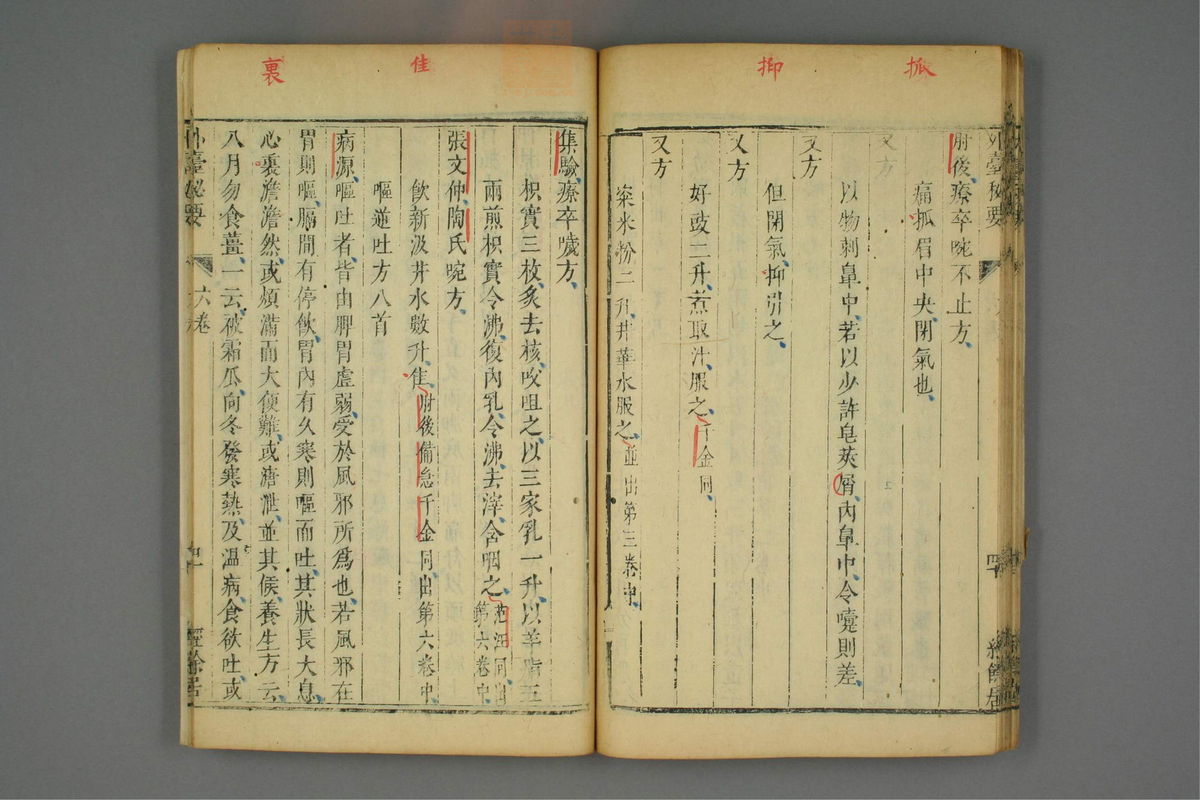 抓
抑
外臺秘要
六卷
經餘居
肘後療卒啘不止方
痛抓眉中央閉氣也
又方
以物刺鼻中若以少許皂莢屑內鼻中令嚏則差
又方
但閉氣抑引之
又方
好豉二升煮取汁服之千金同
又方
粢米粉二升井華水服之並出第三卷中
佳
裏
集驗療卒噦方
枳實三枚炙去核㕮咀之以三家乳一升以羊脂五
兩煎枳實令沸復內乳令沸去滓含咽之范汪同出
第六卷中
張文仲陶氏啘方
飲新汲井水數升佳肘後備急千金同出第六卷中
嘔逆吐方八首
病源嘔吐者皆由脾胃虛弱受於風邪所為也若風邪在
胃則嘔膈間有停飲胃內有久寒則嘔而吐其狀長大息
心裏澹澹然或煩滿而大便難或溏泄並其候養生方云
八月勿食薑一云被霜瓜向冬發寒熱及溫病食欲吐或
外臺秘要
六卷
經餘居